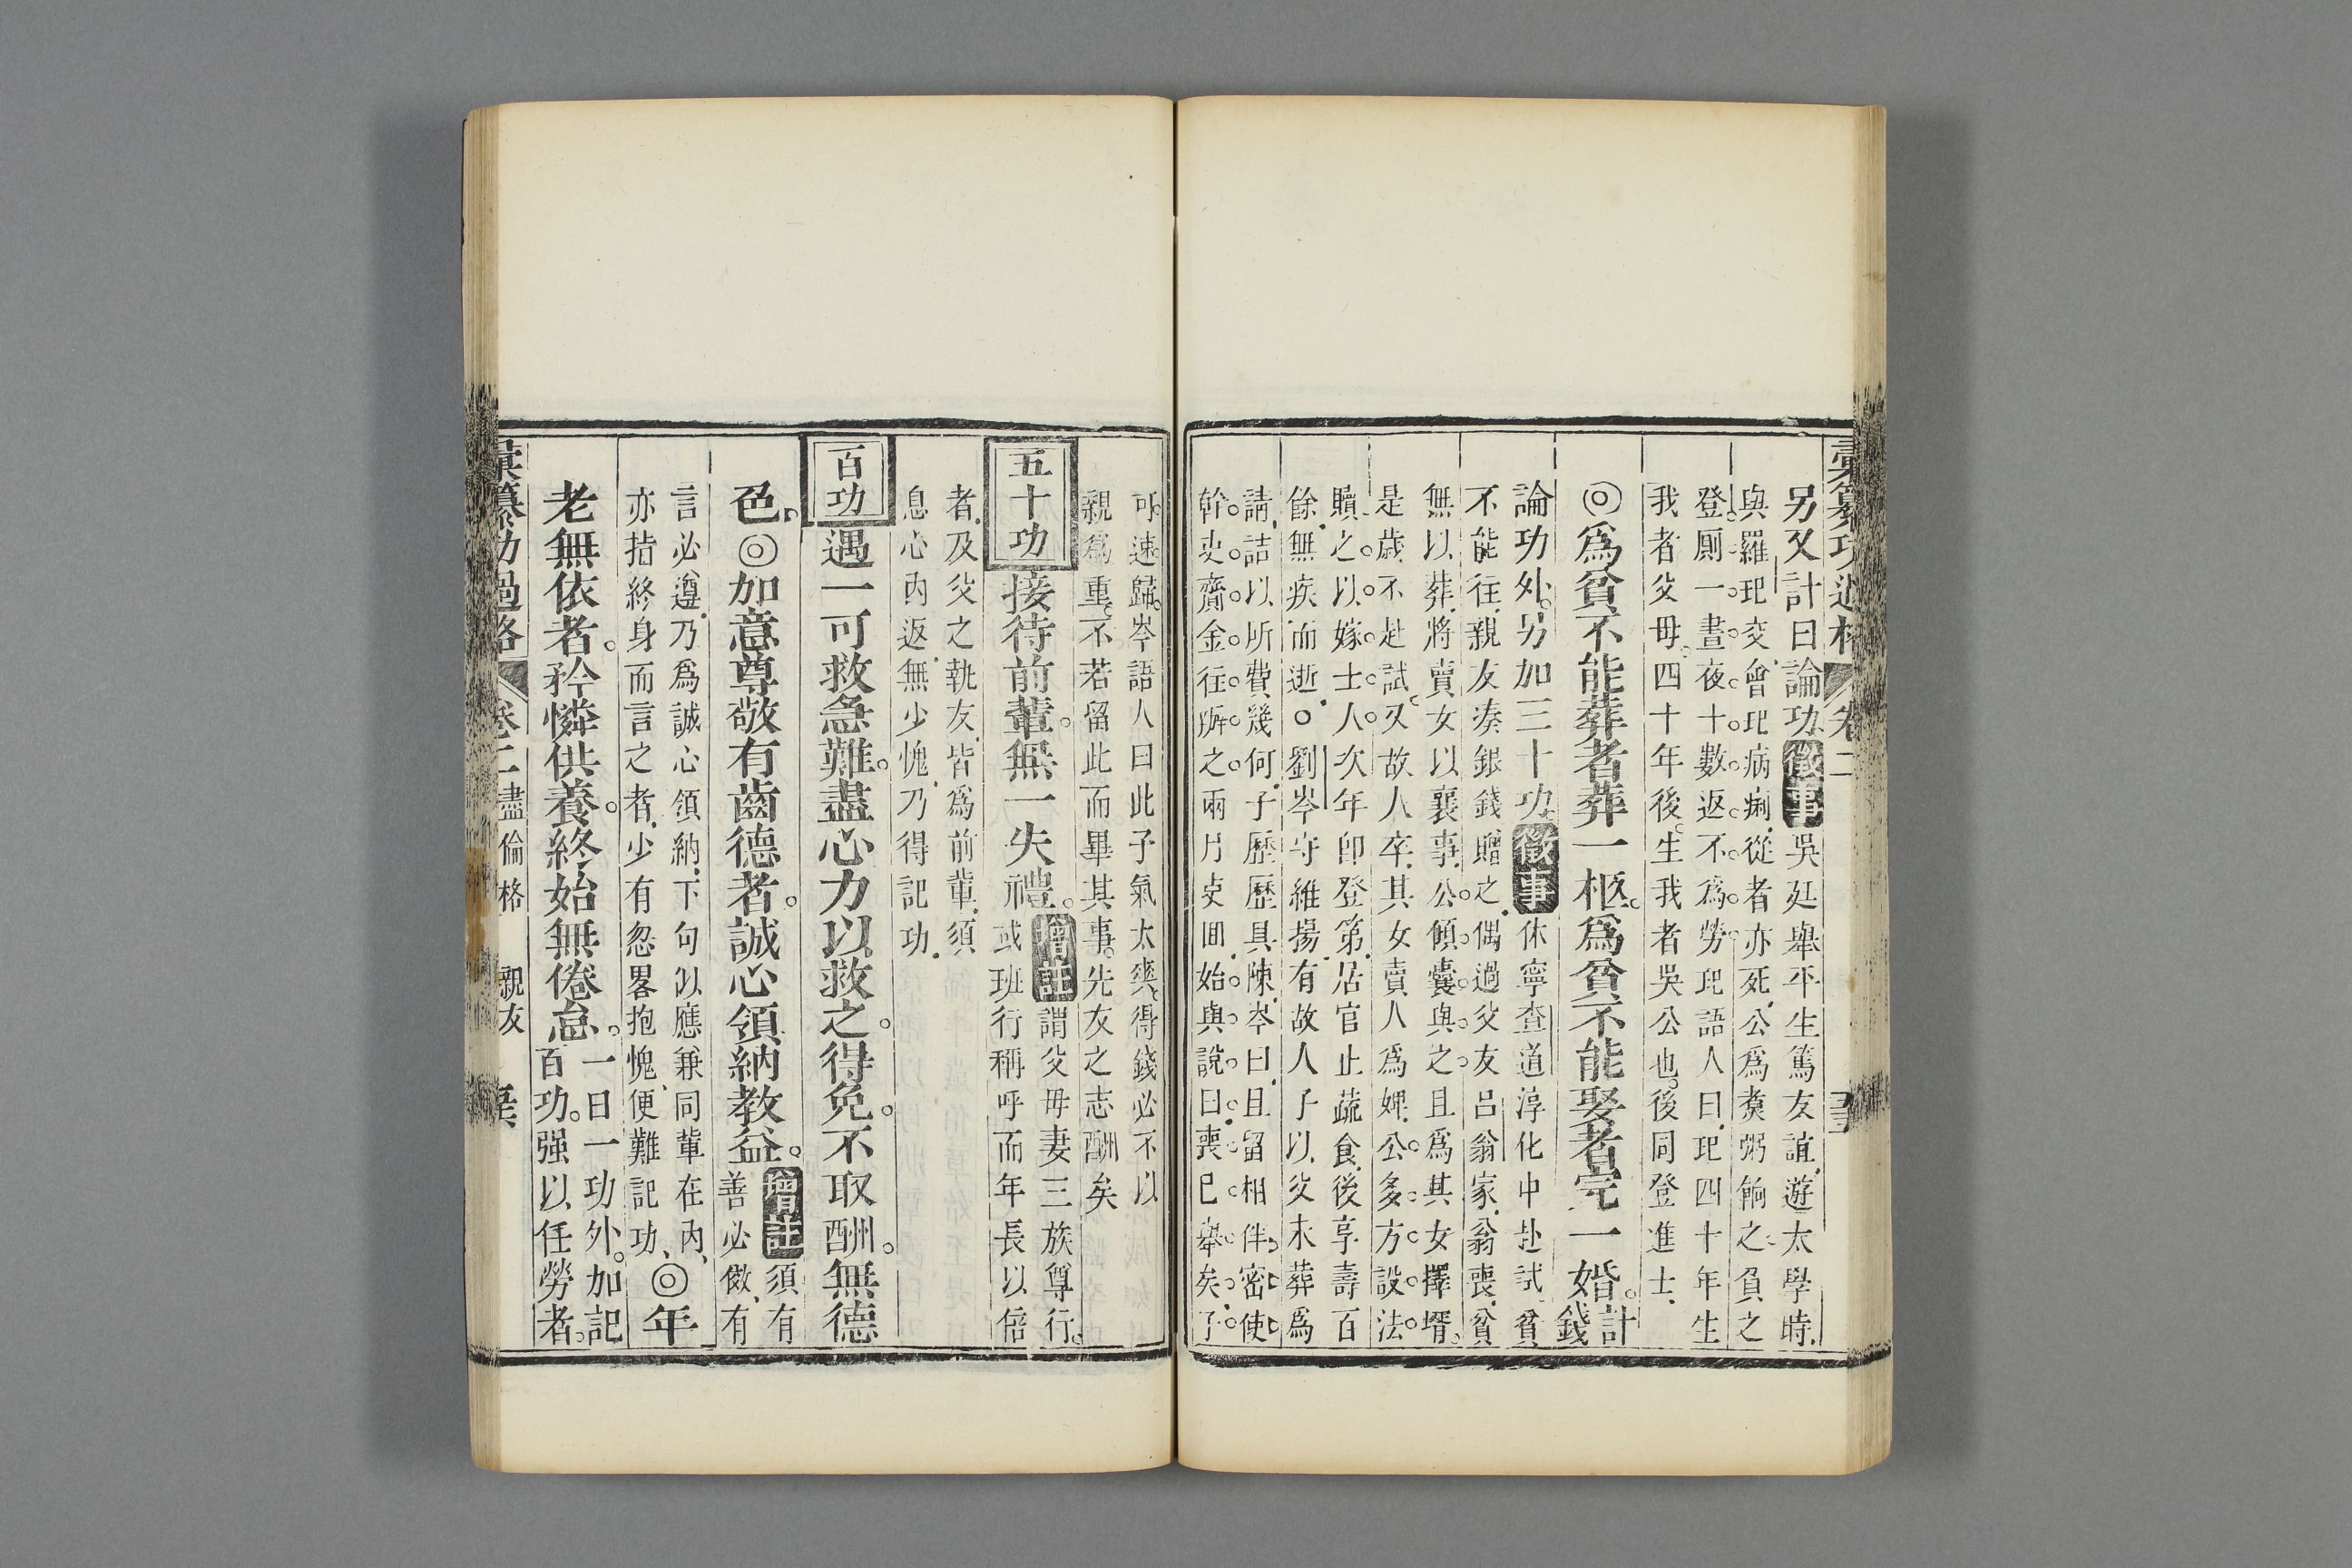 彙纂功過格 卷二
另又計曰論功徵事吳廷舉平生篤友誼遊太學時
與羅玘交會玘病痢從者亦死公爲煑粥餉之負之
登厠一晝夜十數返不爲勞玘語人曰玘四十年生
我者父母四十年後生我者吳公也後同登進士
◎爲貧不能葬者葬一柩爲貧不能娶者完一婚計錢
論功外另加三十功徵事休寧查道淳化中赴試貧
不能往親友湊銀錢贈之偶過父友呂翁家翁喪貧
無以葬將賣女以襄事公傾囊與之且爲其女擇壻
是歲不赴試又故人卒其女賣人爲婢公多方設法
贖之以嫁士人次年卽登第居官止蔬食後享壽百
餘無疾而逝○劉岑守維揚有故人子以父未葬爲
請詰以所費幾何子歷歷具陳岑曰且留相伴密使
幹吏齎金往所之兩月吏囬始與說曰喪已舉矣子
可速歸岑語人曰此子氣太爽得錢必不以
親爲重不若留此而畢其事先友之志酬矣
五十功 接待前輩無一失禮增註謂父母妻三族尊行
或班行稱呼而年長以倍
者及父之執友皆爲前輩須
息心內返無少愧乃得記功
百功 遇一可救急難盡心力以救之得免不取酬無德
色◎加意尊敬有齒德者誠心領納教益增註須有
善必儆有
言必遵乃爲誠心領納下句以應兼同輩在內
亦指終身而言之者少有忽畧抱愧便難記功◎年
老無依者矜憐供養終始無倦怠一日一功外加記
百功强以任勞者
彙纂功過格 卷二 盡倫格 親友